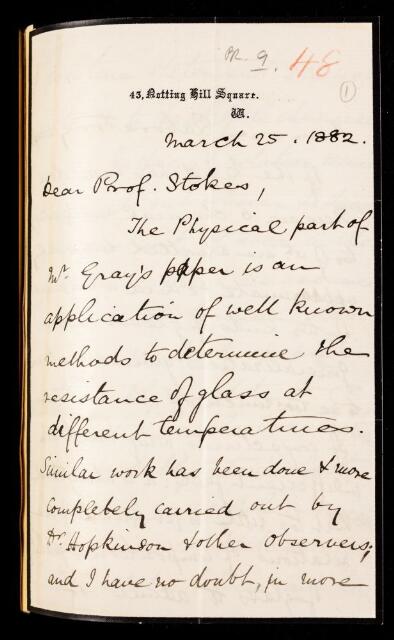 PR. 9. 48
1
43, Notting Hill Square.
W.
March 25. 1882.
Dear Prof. Stokes,
The Physical part of
Mr. Gray's paper is an
application of well known
methods to determine the
resistance of glass at
different temperatures.
Similar work has been done & more
completely carried out by
Dr. Hopkinson & other observers;
and I have no doubt, in more